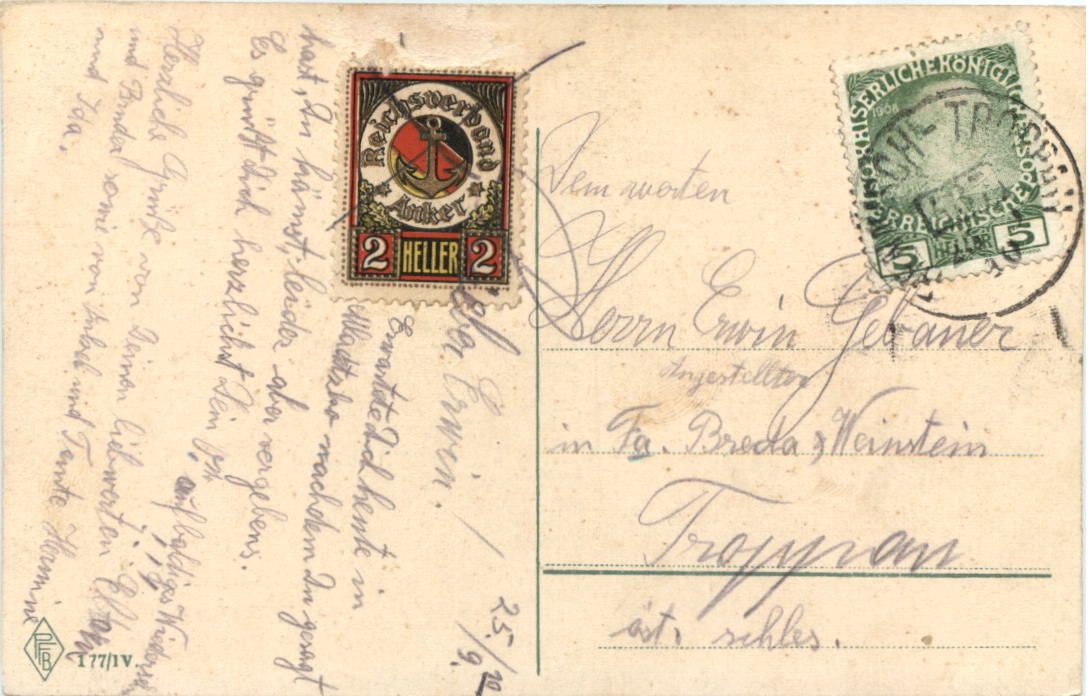 Reichsverband
Anker
2 HELLER 2
KAISERLICHEKÖNIGLICHE
ÖSTERREICHISCHE POST
1908
5 HELLER 5
TROPPAU
10
Dem werten
Herrn Erwin Gebauer
Angestellter
in Fa. Breda & Weinstein
Troppau
öst. schles.
25./9. 10
Lieber Erwin!
Erwartete Dich heute in
nachdem Du gesagt
hast, Du kämst, leider aber vergebens.
Es grüßt dich herzlichst Dein
auf baldiges Wiederseh
Herzliche Grüße von Deinen liebwerten Eltern
und Bruder sowie von Onkel und Tante Hermine
und Ida.
PFB
177/IV.